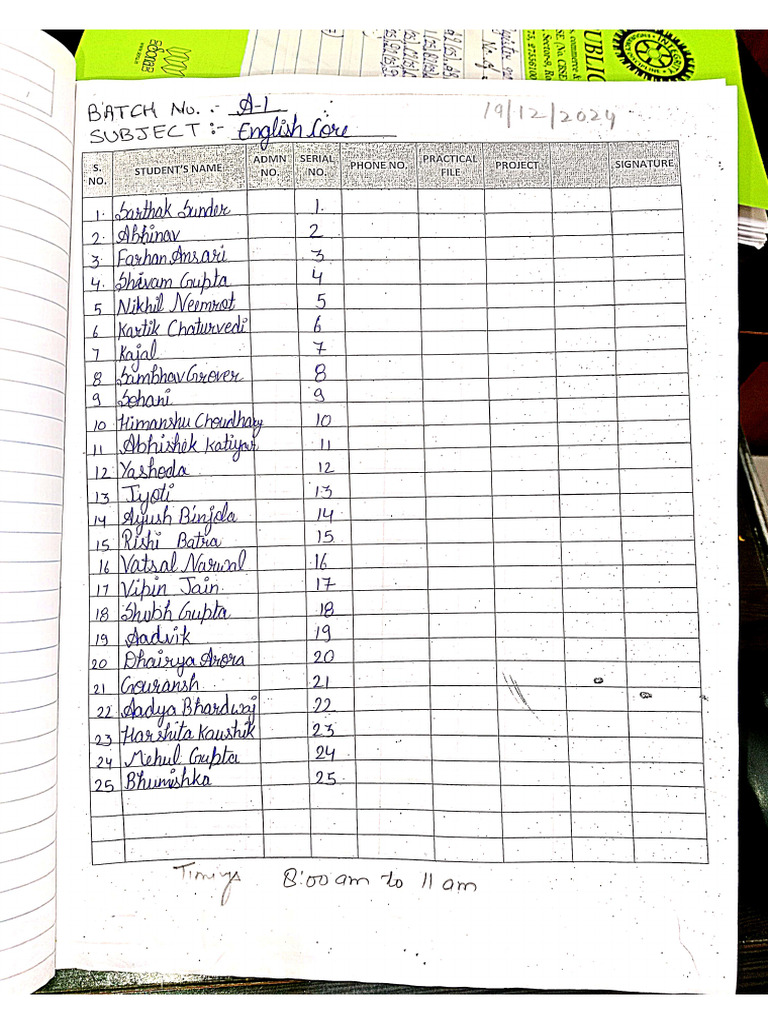 BATCH No. :- A-1
19/12/2024
SUBJECT :- English Core
S. NO. STUDENT'S NAME ADMN NO. SERIAL NO. PHONE NO. PRACTICAL FILE PROJECT SIGNATURE
1. Sarthak Sunder 1.
2. Abhinav 2
3. Farhan Ansari 3
4. Shivam Gupta 4
5 Nikhil Neemrot 5
6 Kartik Chaturvedi 6
7 Kajal 7
8 Sambhav Grover 8
9 Sohani 9
10 Himanshu Choudhary 10
11 Abhishek Katiyar 11
12 Yashoda 12
13 Jyoti 13
14 Ayush Binjola 14
15 Rishi Batra 15
16 Vatsal Narwal 16
17 Vipin Jain 17
18 Shubh Gupta 18
19 Aadvik 19
20 Dhairya Arora 20
21 Gouransh 21
22 Aadya Bhardwaj 22
23 Harshita Kaushik 23
24 Mehul Gupta 24
25 Bhumishka 25
Timings 8:00 am to 11 am